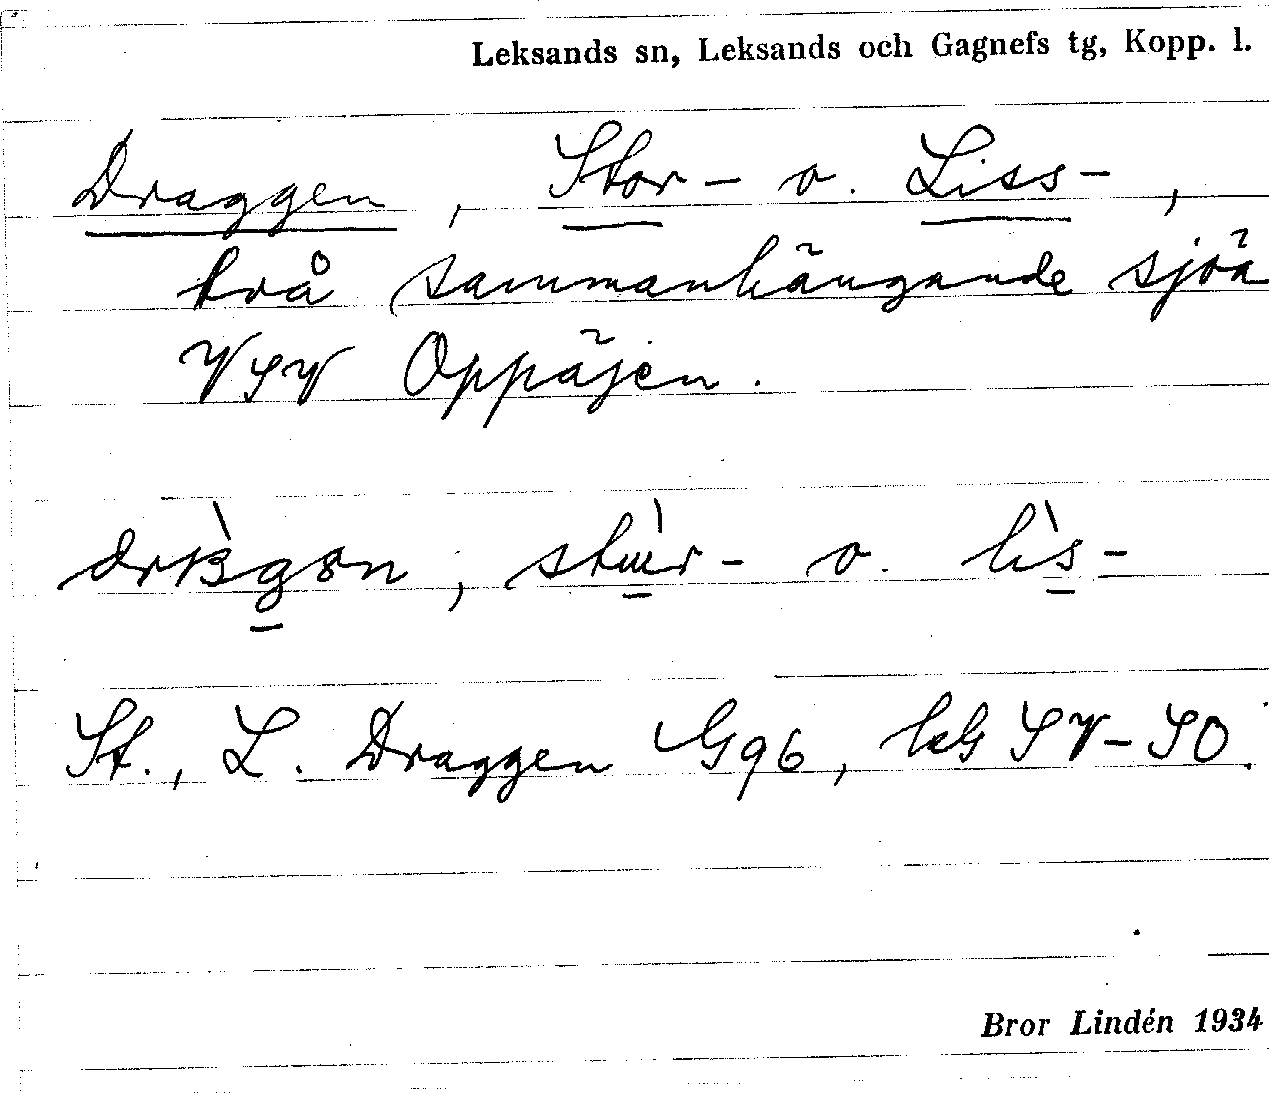 Leksands sn, Leksands och Gagnefs tg, Kopp. l.
Draggen, Stor- o. Liss-,
två sammanhängande sjöa
VSV Oppåjen.
stùr- o. lìs-
St., L. Draggen G96, lkG SV-SO.
Bror Lindén 1934